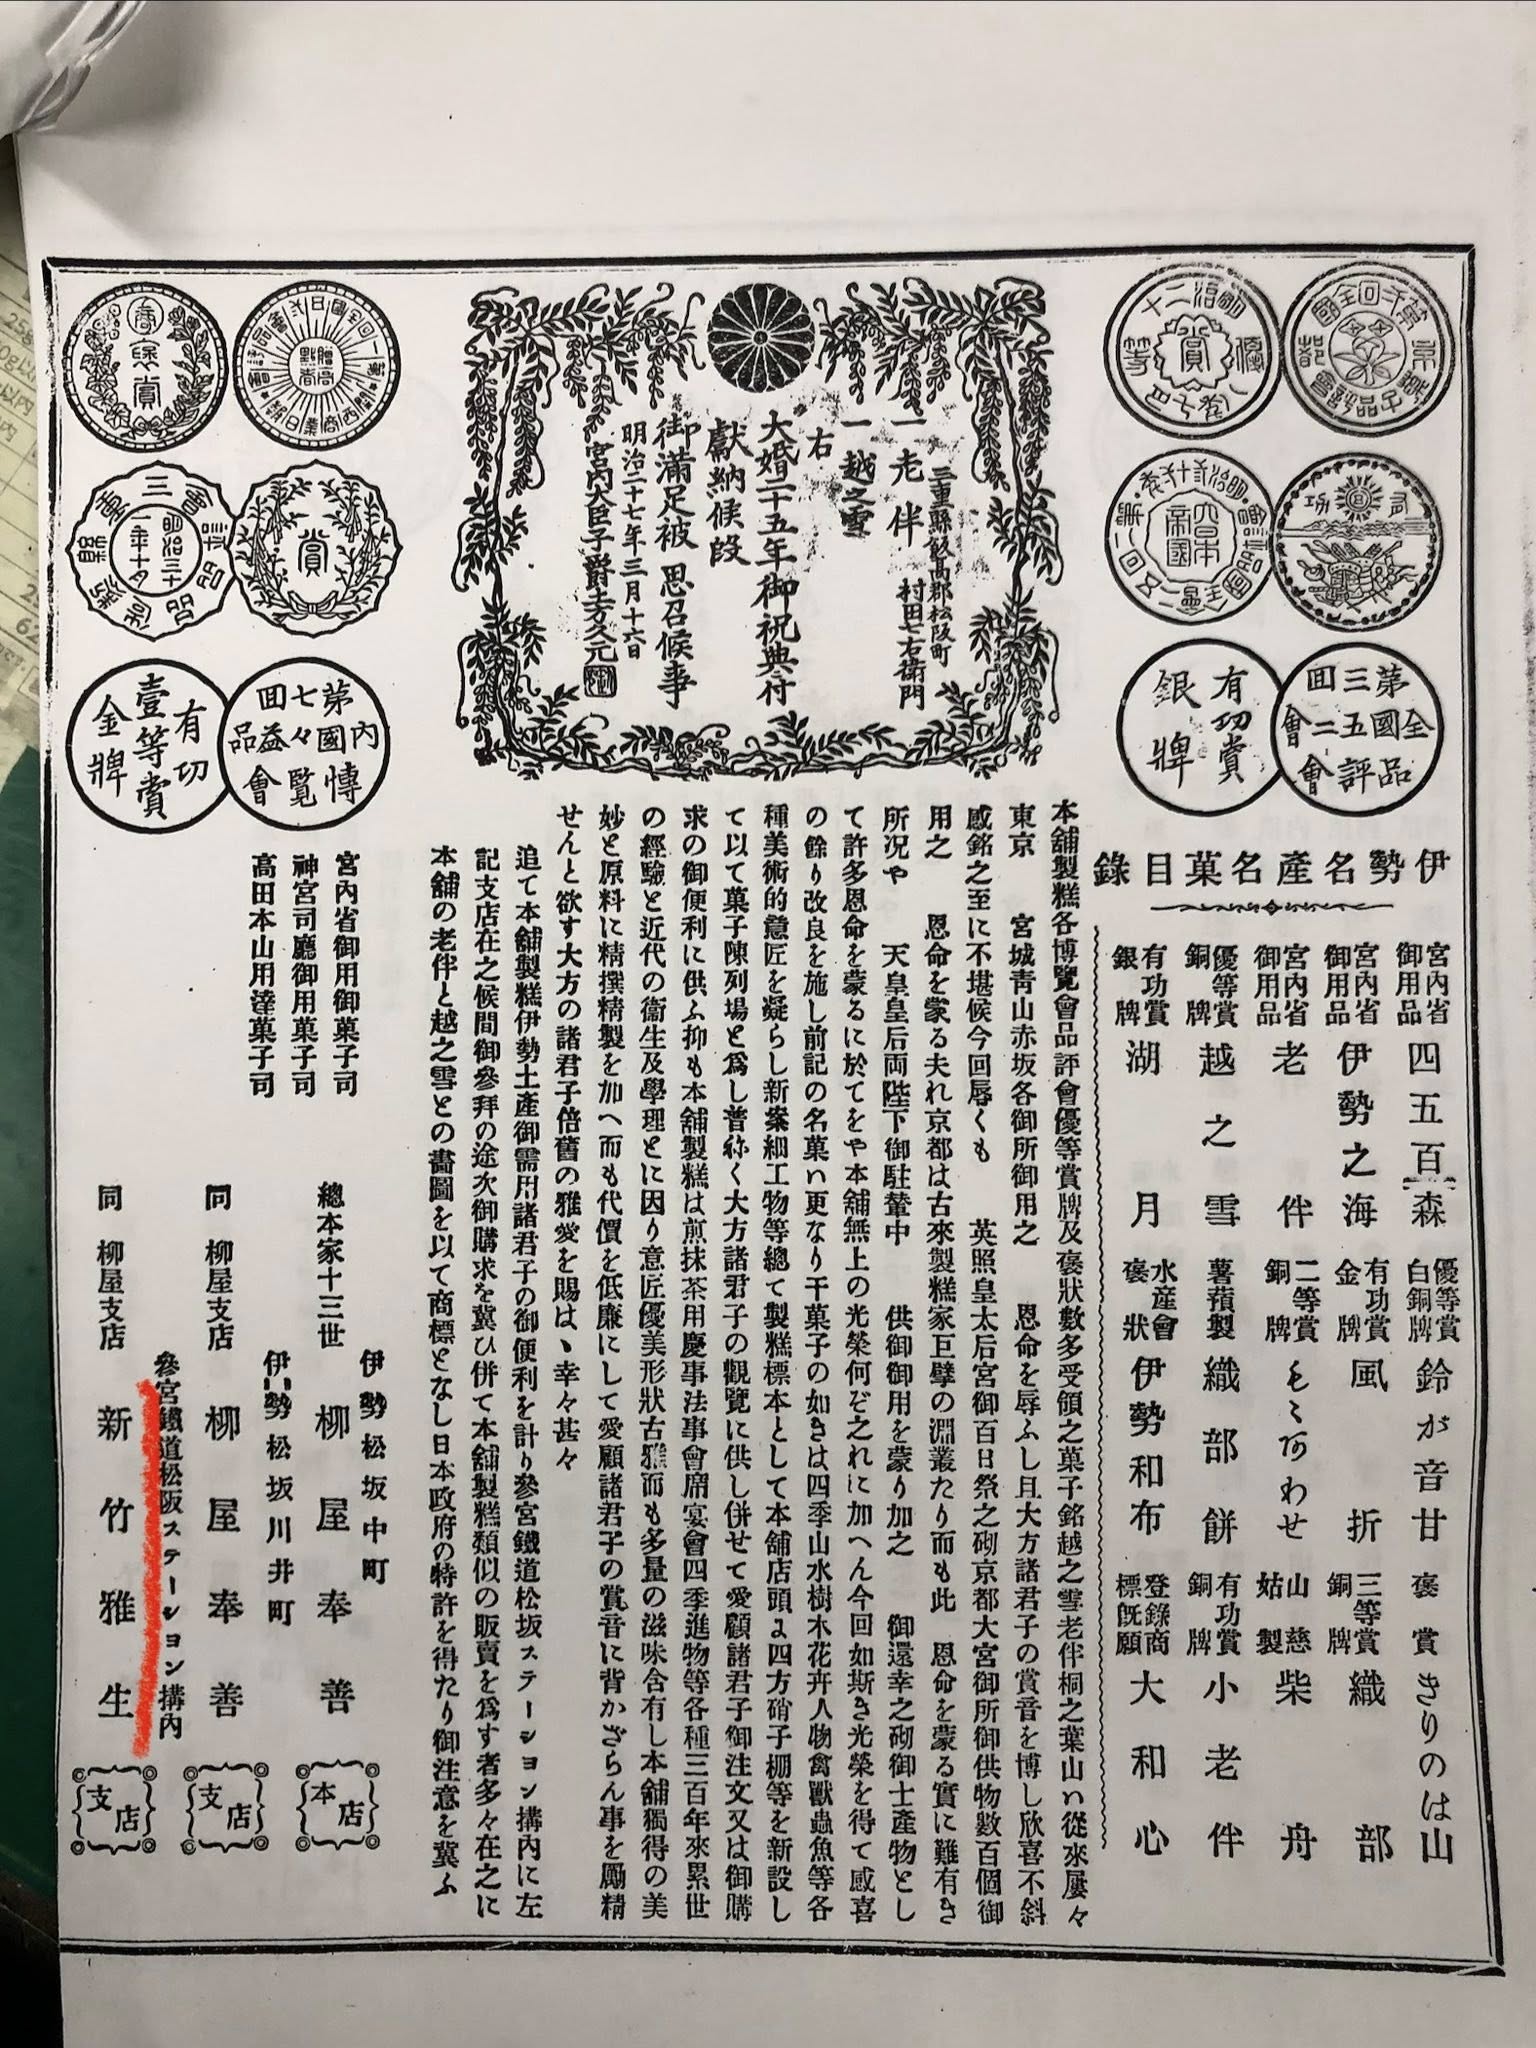 伊勢名産名菓目錄
宮內省御用品 四五百森 優等賞白銅牌 鈴が音甘 褒賞 きりのは山
宮內省御用品 伊勢之海 有功賞金牌 風折 三等賞銅牌 織部
宮內省御用品 老伴 二等賞銅牌 もみあわせ 山慈姑製 柴舟
優等賞銅牌 越之雪 薯蕷製 織部餅 有功賞銅牌 小老伴
有功賞銀牌 湖月 水産會褒狀 伊勢和布 登錄商標既願 大和心
第三回全國五二品評會
有功賞銀牌
三重縣飯高郡松阪町
村田七右衛門
一老伴
一越之雪
右
大婚二十五年御祝典付
獻納候段
御滿足被思召候事
明治二十七年三月十六日
宮內大臣子爵土方久元
賞
第七回內國々益博覽品會
有功壹等賞金牌
三重縣
明治三十一年十月
本舖製糕各博覽會品評會優等賞牌及褒狀數多受領之菓子銘越之雪老伴桐之葉山ハ從來屢々
東京 宮城靑山赤坂各御所御用之 恩命を辱ふし且大方諸君子の賞音を博し欣喜不斜
感銘之至に不堪候今回辱くも 英照皇太后宮御百日祭之砌京都大宮御所御供物數百個御
用之 恩命を蒙る夫れ京都は古來製糕家巨擘の淵叢たり而も此 恩命を蒙る實に難有き
所况や 天皇皇后両陛下御駐輦中 供御御用を蒙り加之 御還幸之砌御土產物とし
て許多恩命を蒙るに於てをや本舖無上の光榮何ぞ之れに加へん今回如斯き光榮を得て感喜
の餘り改良を施し前記の名菓ハ更なり干菓子の如きは四季山水樹木花卉人物禽獸蟲魚等各
種美術的意匠を凝らし新案細工物等總て製糕標本として本舖店頭よ四方硝子棚等を新設し
て以て菓子陳列場と爲し普ねく大方諸君子の觀覽に供し併せて愛顧諸君子御注文又は御購
求の御便利に供ふ抑も本舖製糕は煎抹茶用慶事法事會席宴會四季進物等各種三百年來累世
の經驗と近代の衞生及學理とに因り意匠優美形狀古雅而も多量の滋味含有し本舖獨得の美
妙と原料に精撰精製を加へ而も代價を低廉にして愛顧諸君子の賞音に背かざらん事を勵精
せんと欲す大方の諸君子倍舊の雅愛を賜はヽ幸々甚々
追て本舖製糕伊勢土產御需用諸君子の御便利を計り參宮鐵道松坂ステーション搆內に左
記支店在之候間御參拜の途次御購求を冀ひ併て本舖製糕類似の販賣を爲す者多々在之に
本舖の老伴と越之雪との畵圖を以て商標となし日本政府の特許を得たり御注意を冀ふ
宮內省御用御菓子司
神宮司廳御用菓子司
高田本山用達菓子司
伊勢松坂中町
總本家十三世 柳屋奉善 本店
伊勢松坂川井町
同 柳屋支店 柳屋奉善 支店
參宮鐵道松阪ステーション搆內
同 柳屋支店 新竹雅生 支店